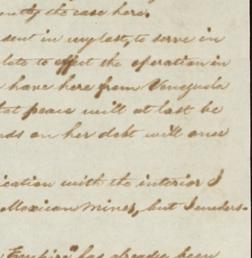 the case here.
sent in my last, to serve in
late to effect the operation in
have here from Venezuela
that peace will at last be
on her debt will once
ication with the interior I
Mexican Mines, but I unders-
Empire" has already been